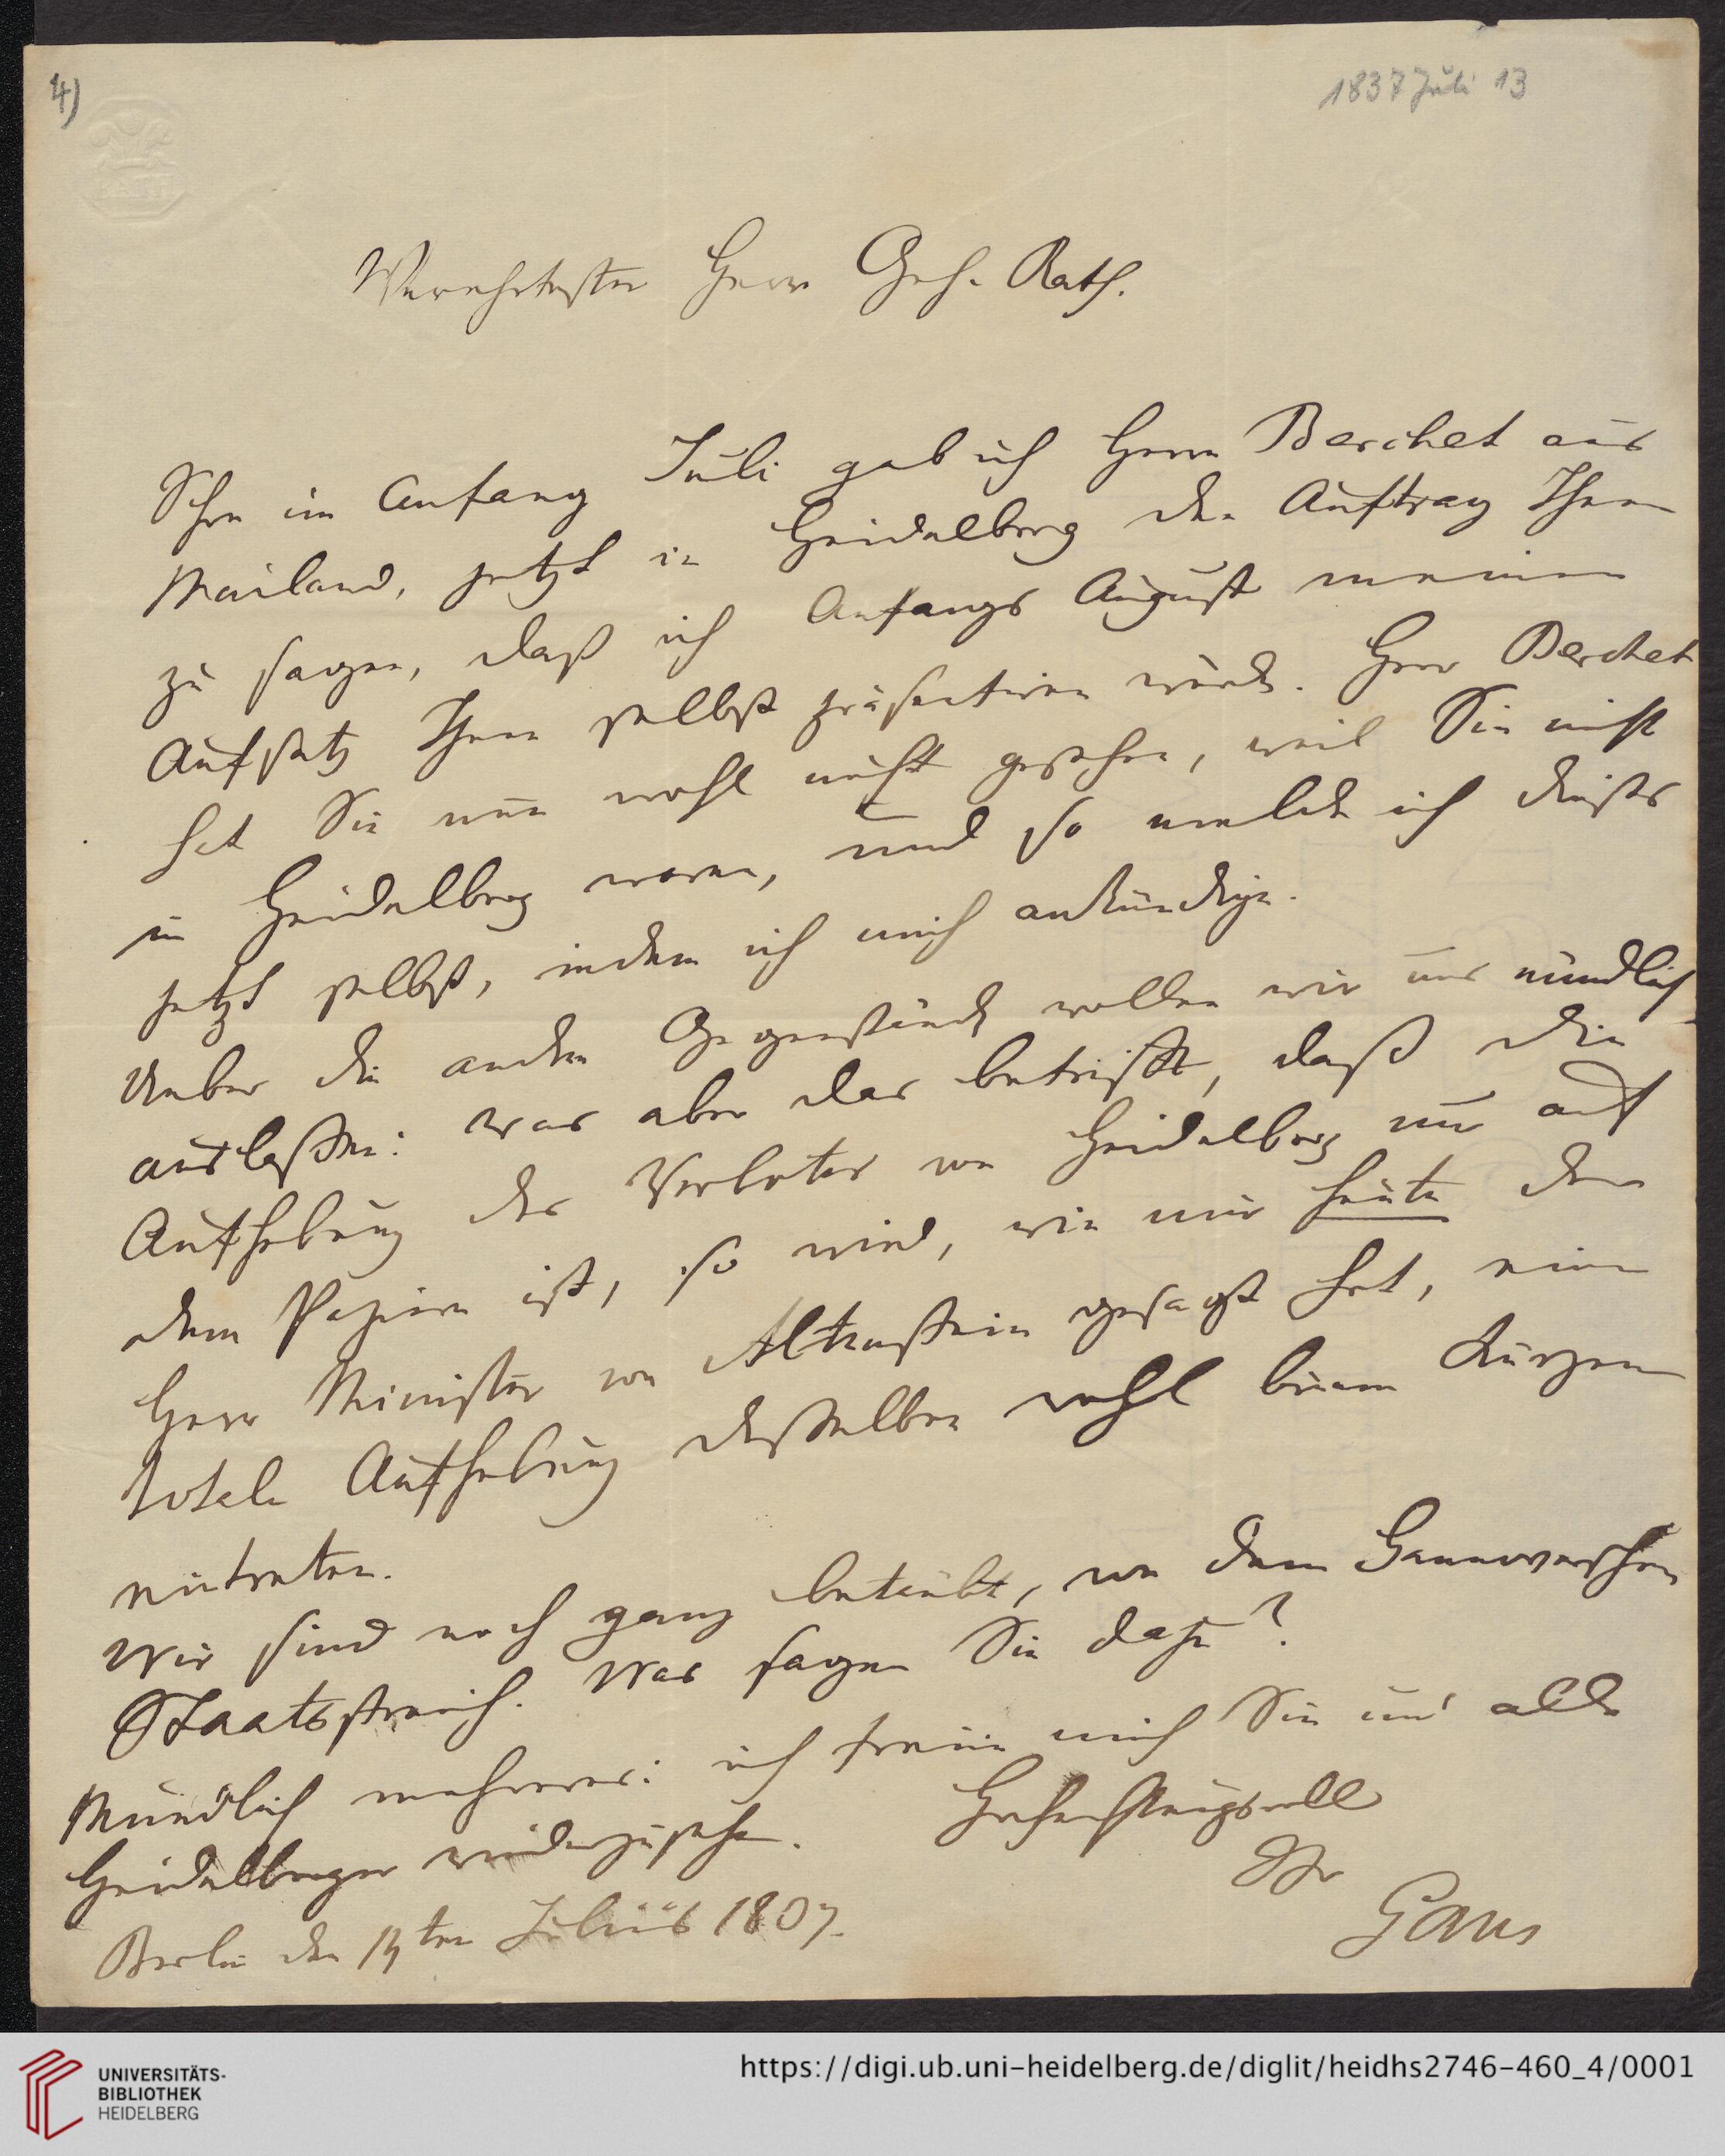 4)
1837 Juli 13
Verehrtester Herr Geh. Rath.
Schon im Anfang Juli gab ich Herrn Berchet aus
Mailand, jetzt in Heidelberg den Auftrag Ihnen
zu sagen, daß ich Anfangs August meinen
Aufsatz Ihnen selbst präsentiren würde. Herr Berchet
hat Sie nun wohl nicht gesehen, weil Sie nicht
in Heidelberg waren, und so melde ich dieses
jetzt selbst, indem ich mich ankündige.
Ueber die andern Gegenstände wollen wir uns mündlich
auslassen: was aber das betrifft, daß die
Aufhebung des Verbotes von Heidelberg nur auf
dem Papiere ist, so wird, wie mir heute der
Herr Minister von Altenstein gesagt hat, eine
totale Aufhebung desselben wohl binnen Kurzem
eintreten.
Wir sind noch ganz betäubt, von dem Hannoverschen
Staatsstreich. Was sagen Sie dazu?
Mündlich mehreres: ich freue mich Sie und alle
Heidelberger wiederzusehen.
Hochachtungsvoll
Ihr
Gans
Berlin den 13ten Julius 1837.
UNIVERSITÄTS-
BIBLIOTHEK
HEIDELBERG
https://digi.ub.uni-heidelberg.de/diglit/heidhs2746-460_4/0001